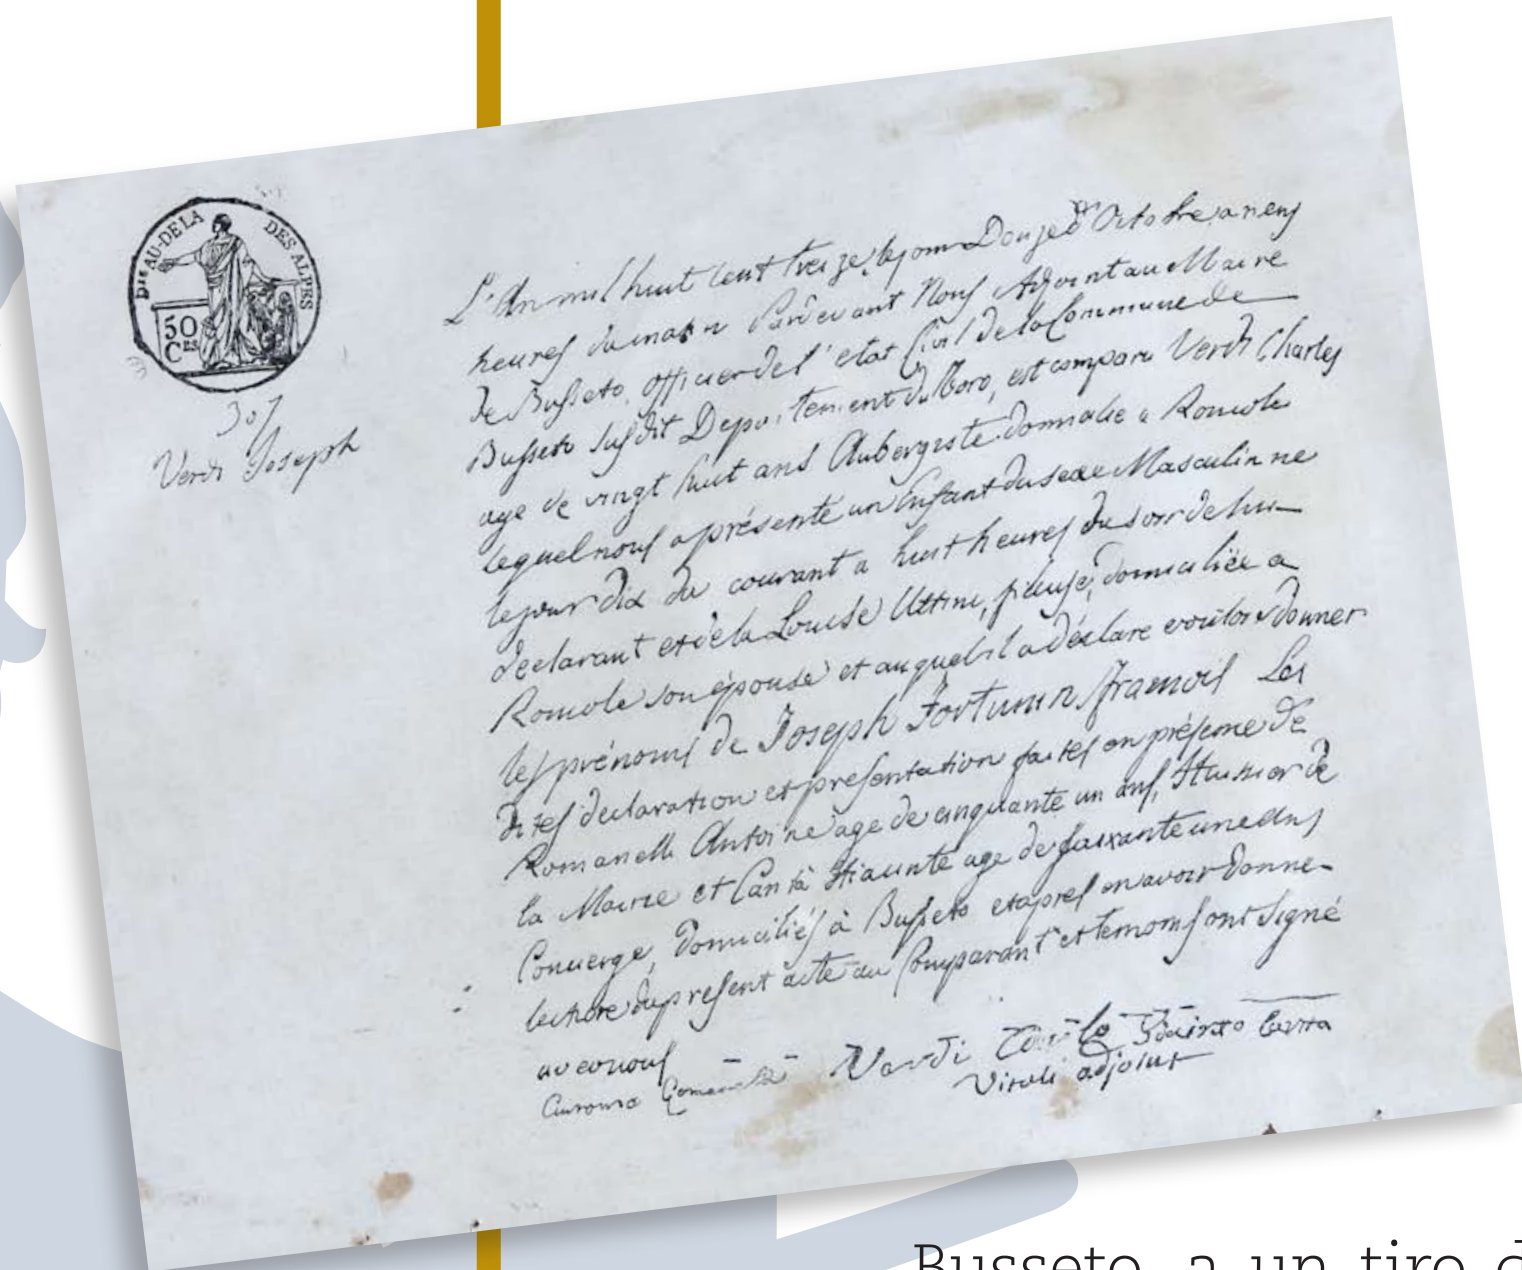 Dts AU-DELA DES ALPES
50
Ces
307
Verdi Joseph
L'An mil huit cent treize, le jour Douze d'Octobre, a neuf
heures du matin Pardevant Nous Adjoint au Maire
de Busseto, officier de l'etat Civil de la Commune de
Busseto susdit Departement du Taro, est comparu Verdi Charles
age de vingt huit ans Aubergiste domicilie a Roncole
lequel nous a présenté un Enfant du sexe Masculin ne
le jour dix du courant a huit heures du soir de lui
declarant et de la Louise Uttini, fileuse, domiciliée a
Roncole son épouse et auquel il a déclaré vouloir donner
les prénoms de Joseph Fortunin François Les
dites declaration et presentation faites en présence de
Romanelli Antoine age de cinquante un ans, Huissier de
la Mairie et Cantù Hiacinte age de soixante une ans
Concierge, domiciliés à Busseto et après en avoir donne
lecture du présent acte au Comparant et temoins ont signé
avec nous
Antonio Romanelli Verdi Carlo Giacinto Cantù
Vitali adjoint
Busseto, a un tiro d